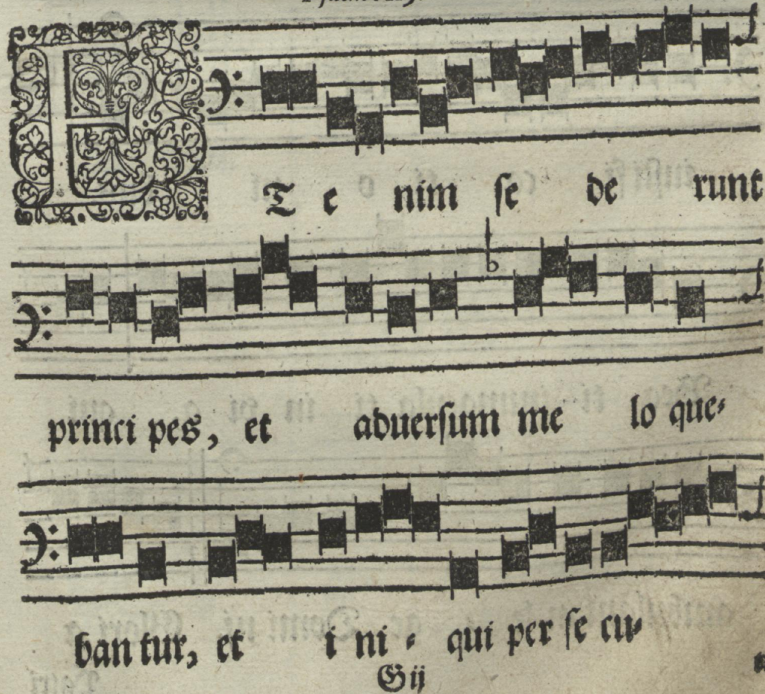 ET e nim se de runt
princi pes, et aduersum me lo que-
ban tur, et i ni - qui per se cu-
Gij